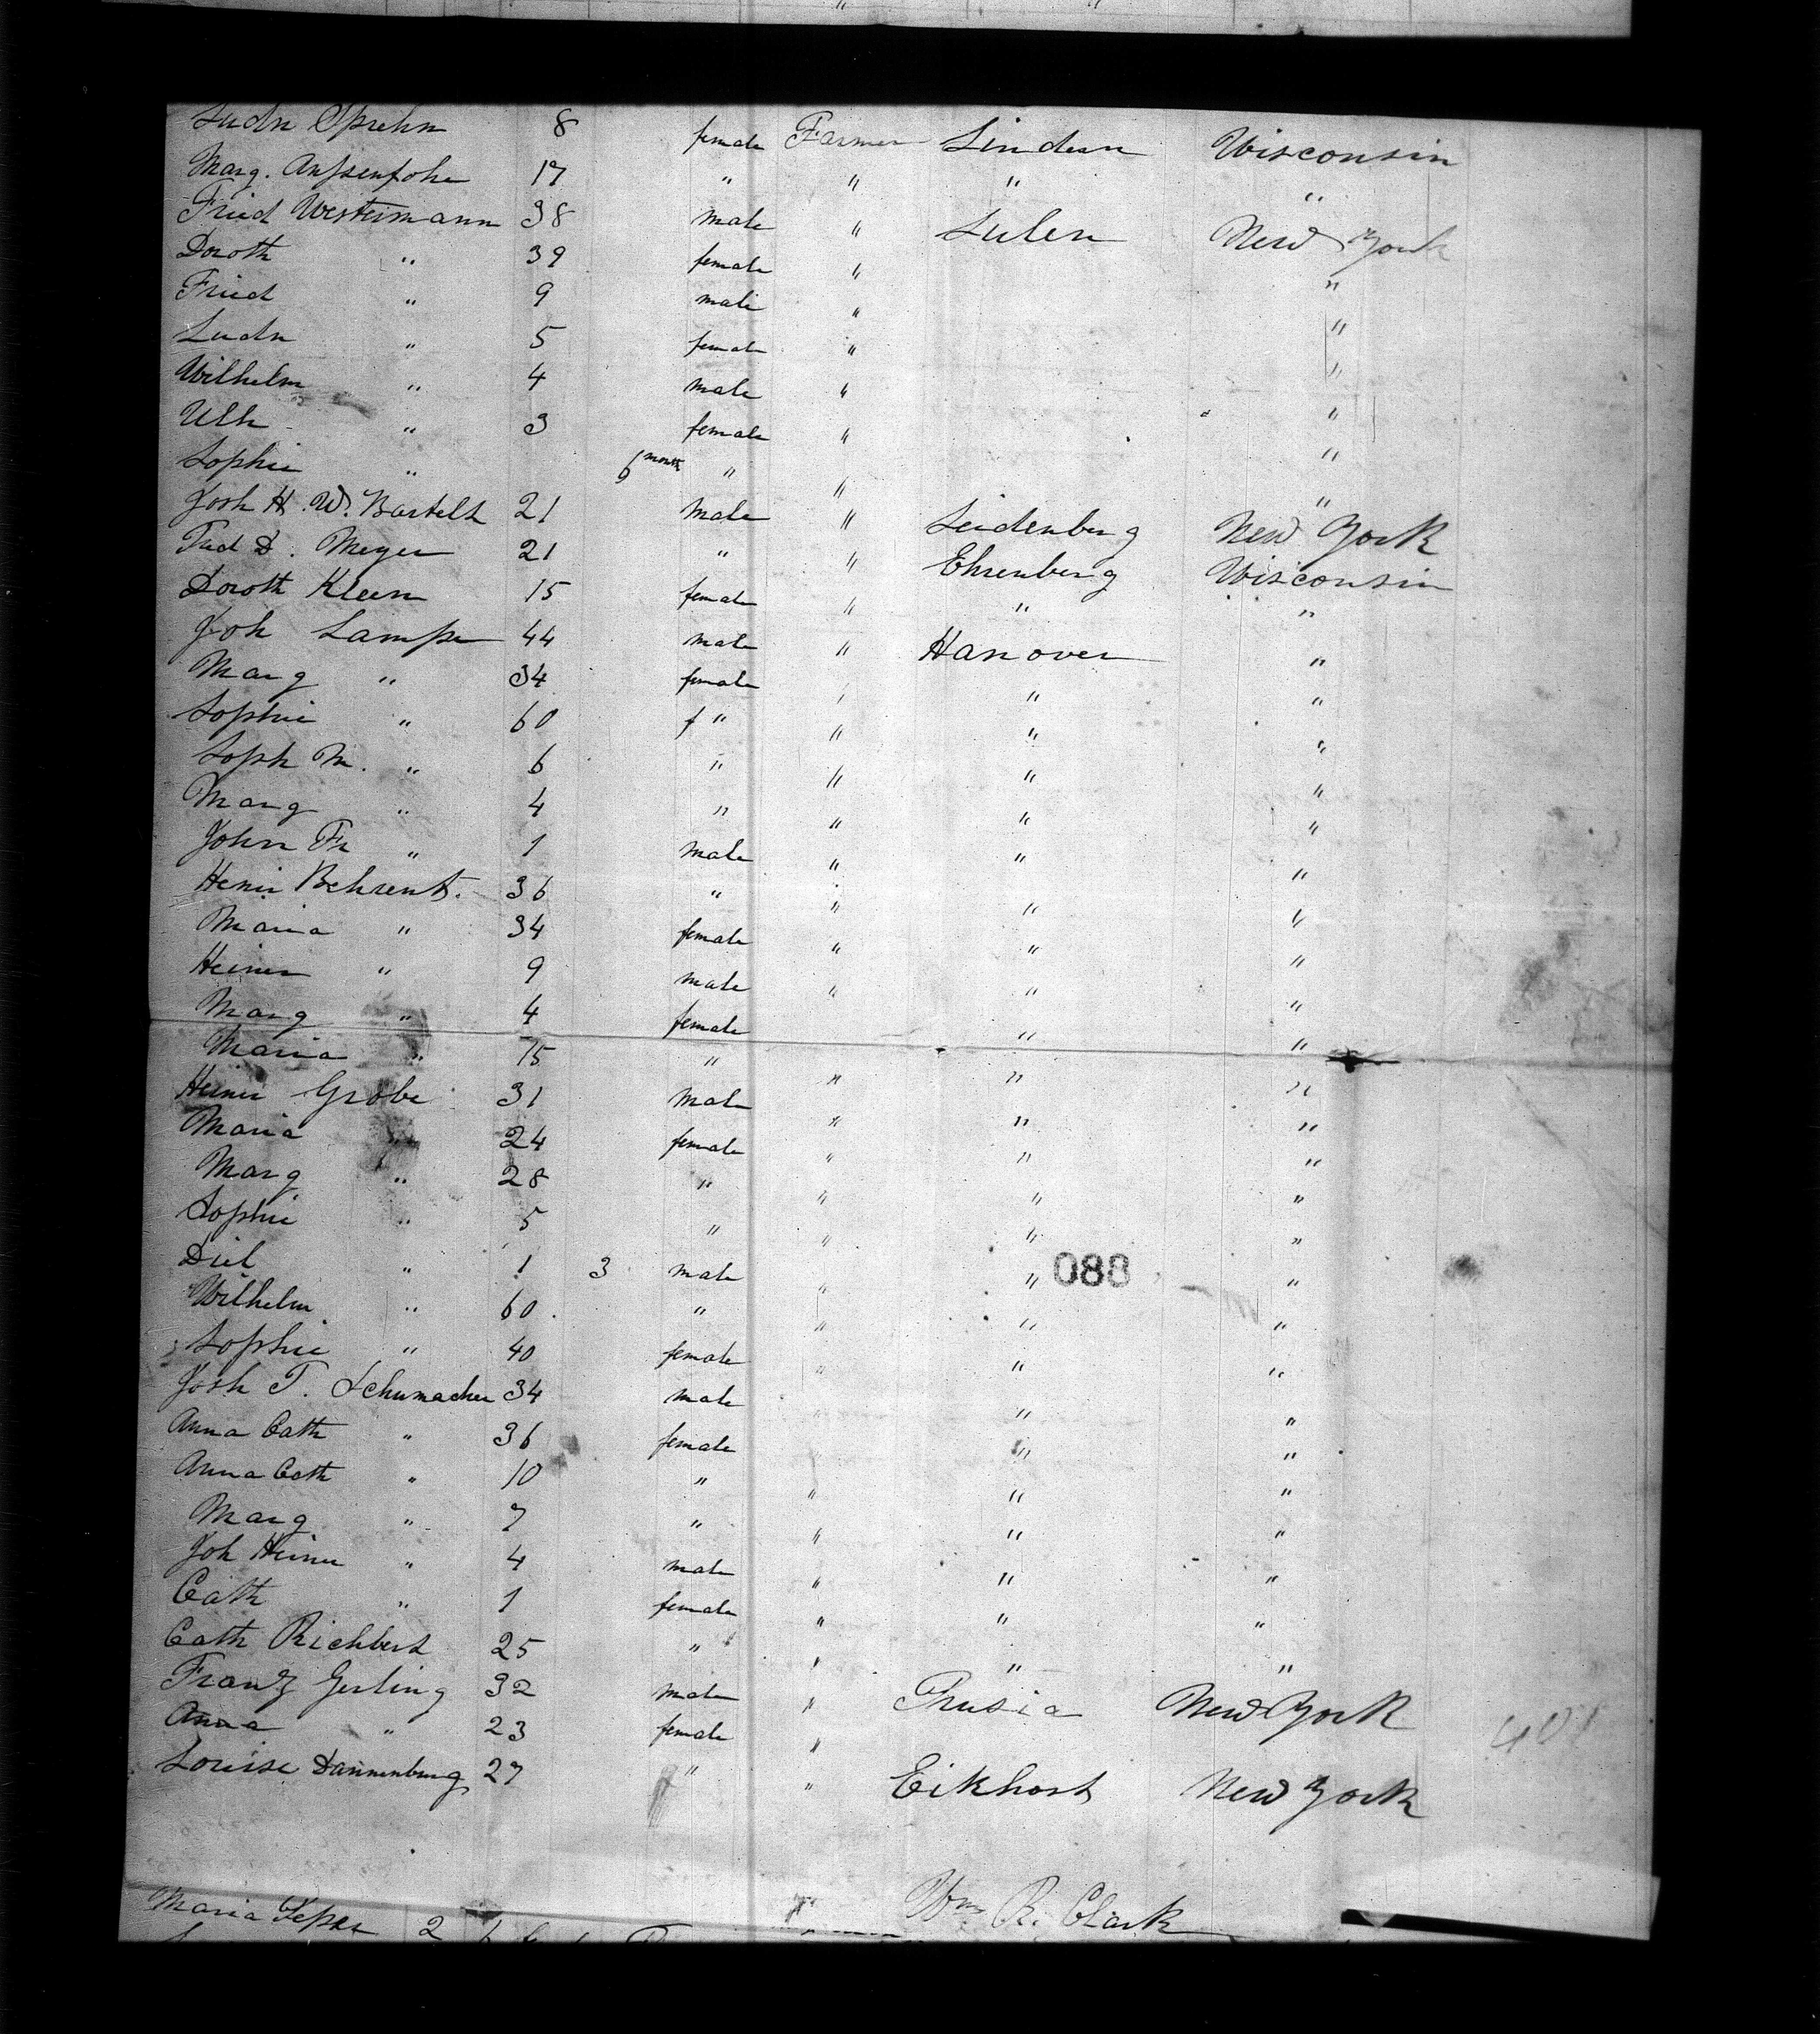 Ludn Sprehn 8 female Farmer Linden Wisconsin
Marg. 17 " " " "
Fried Westermann 38 male " Sulen New York
Doroth " 39 female " "
Fried " 9 male " "
Ludn " 5 female " "
Wilhelm " 4 male " "
Ulh " 3 female " "
Sophie " 6 month " " "
Josh H. W. Bartelt 21 male " Leidenberg New York
Fried D. Meyer 21 " " Ehrenberg Wisconsin
Doroth Kleen 15 female " " "
Joh Lampe 44 male " Hanover "
Marg " 34 female " " "
Sophie " 60 f " " " "
Soph M. " 6 " " " "
Marg " 4 " " " "
John Fr " 1 male " " "
Heinr Behrent. 36 " " " "
Maria " 34 female " " "
Heiner " 9 male " " "
Marg " 4 female " "
Maria " 15 " " " "
Heiner Grobe 31 male " " "
Maria " 24 female " " "
Marg " 28 " " " "
Sophie " 5 " " " "
Diel " 1 3 male " " "
Wilhelm " 60 " " " "
Sophie " 40 female " " "
Josh T. Schumacher 34 male " "
Anna Cath " 36 female " "
Anna Cath " 10 " " " "
Marg " 7 " " " "
Joh Heiner " 4 male " " "
Cath " 1 female " " "
Cath Richbert 25 " " " "
Franz Gerling 32 male " Prusia New York
Anna " 23 female "
Louise Dannenberg 27 " " Eikhorst New York
088
401
Wm R. Clark
Maria 2